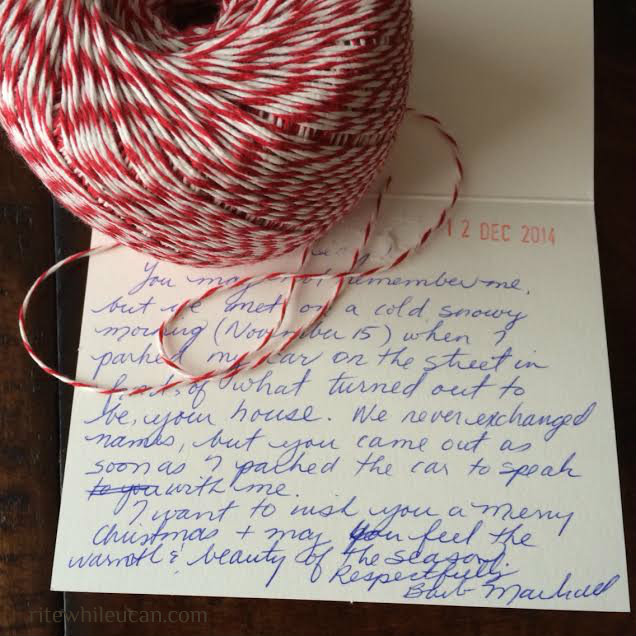 12 DEC 2014
You may not remember me,
but we met on a cold snowy
morning (November 15) when I
parked my car on the street in
front of what turned out to
be, your house. We never exchanged
names, but you came out as
soon as I parked the car to speak
to you with me.
I want to wish you a merry
Christmas + may you feel the
warmth & beauty of the season.
Respectfully
Barb
ritewhileucan.com